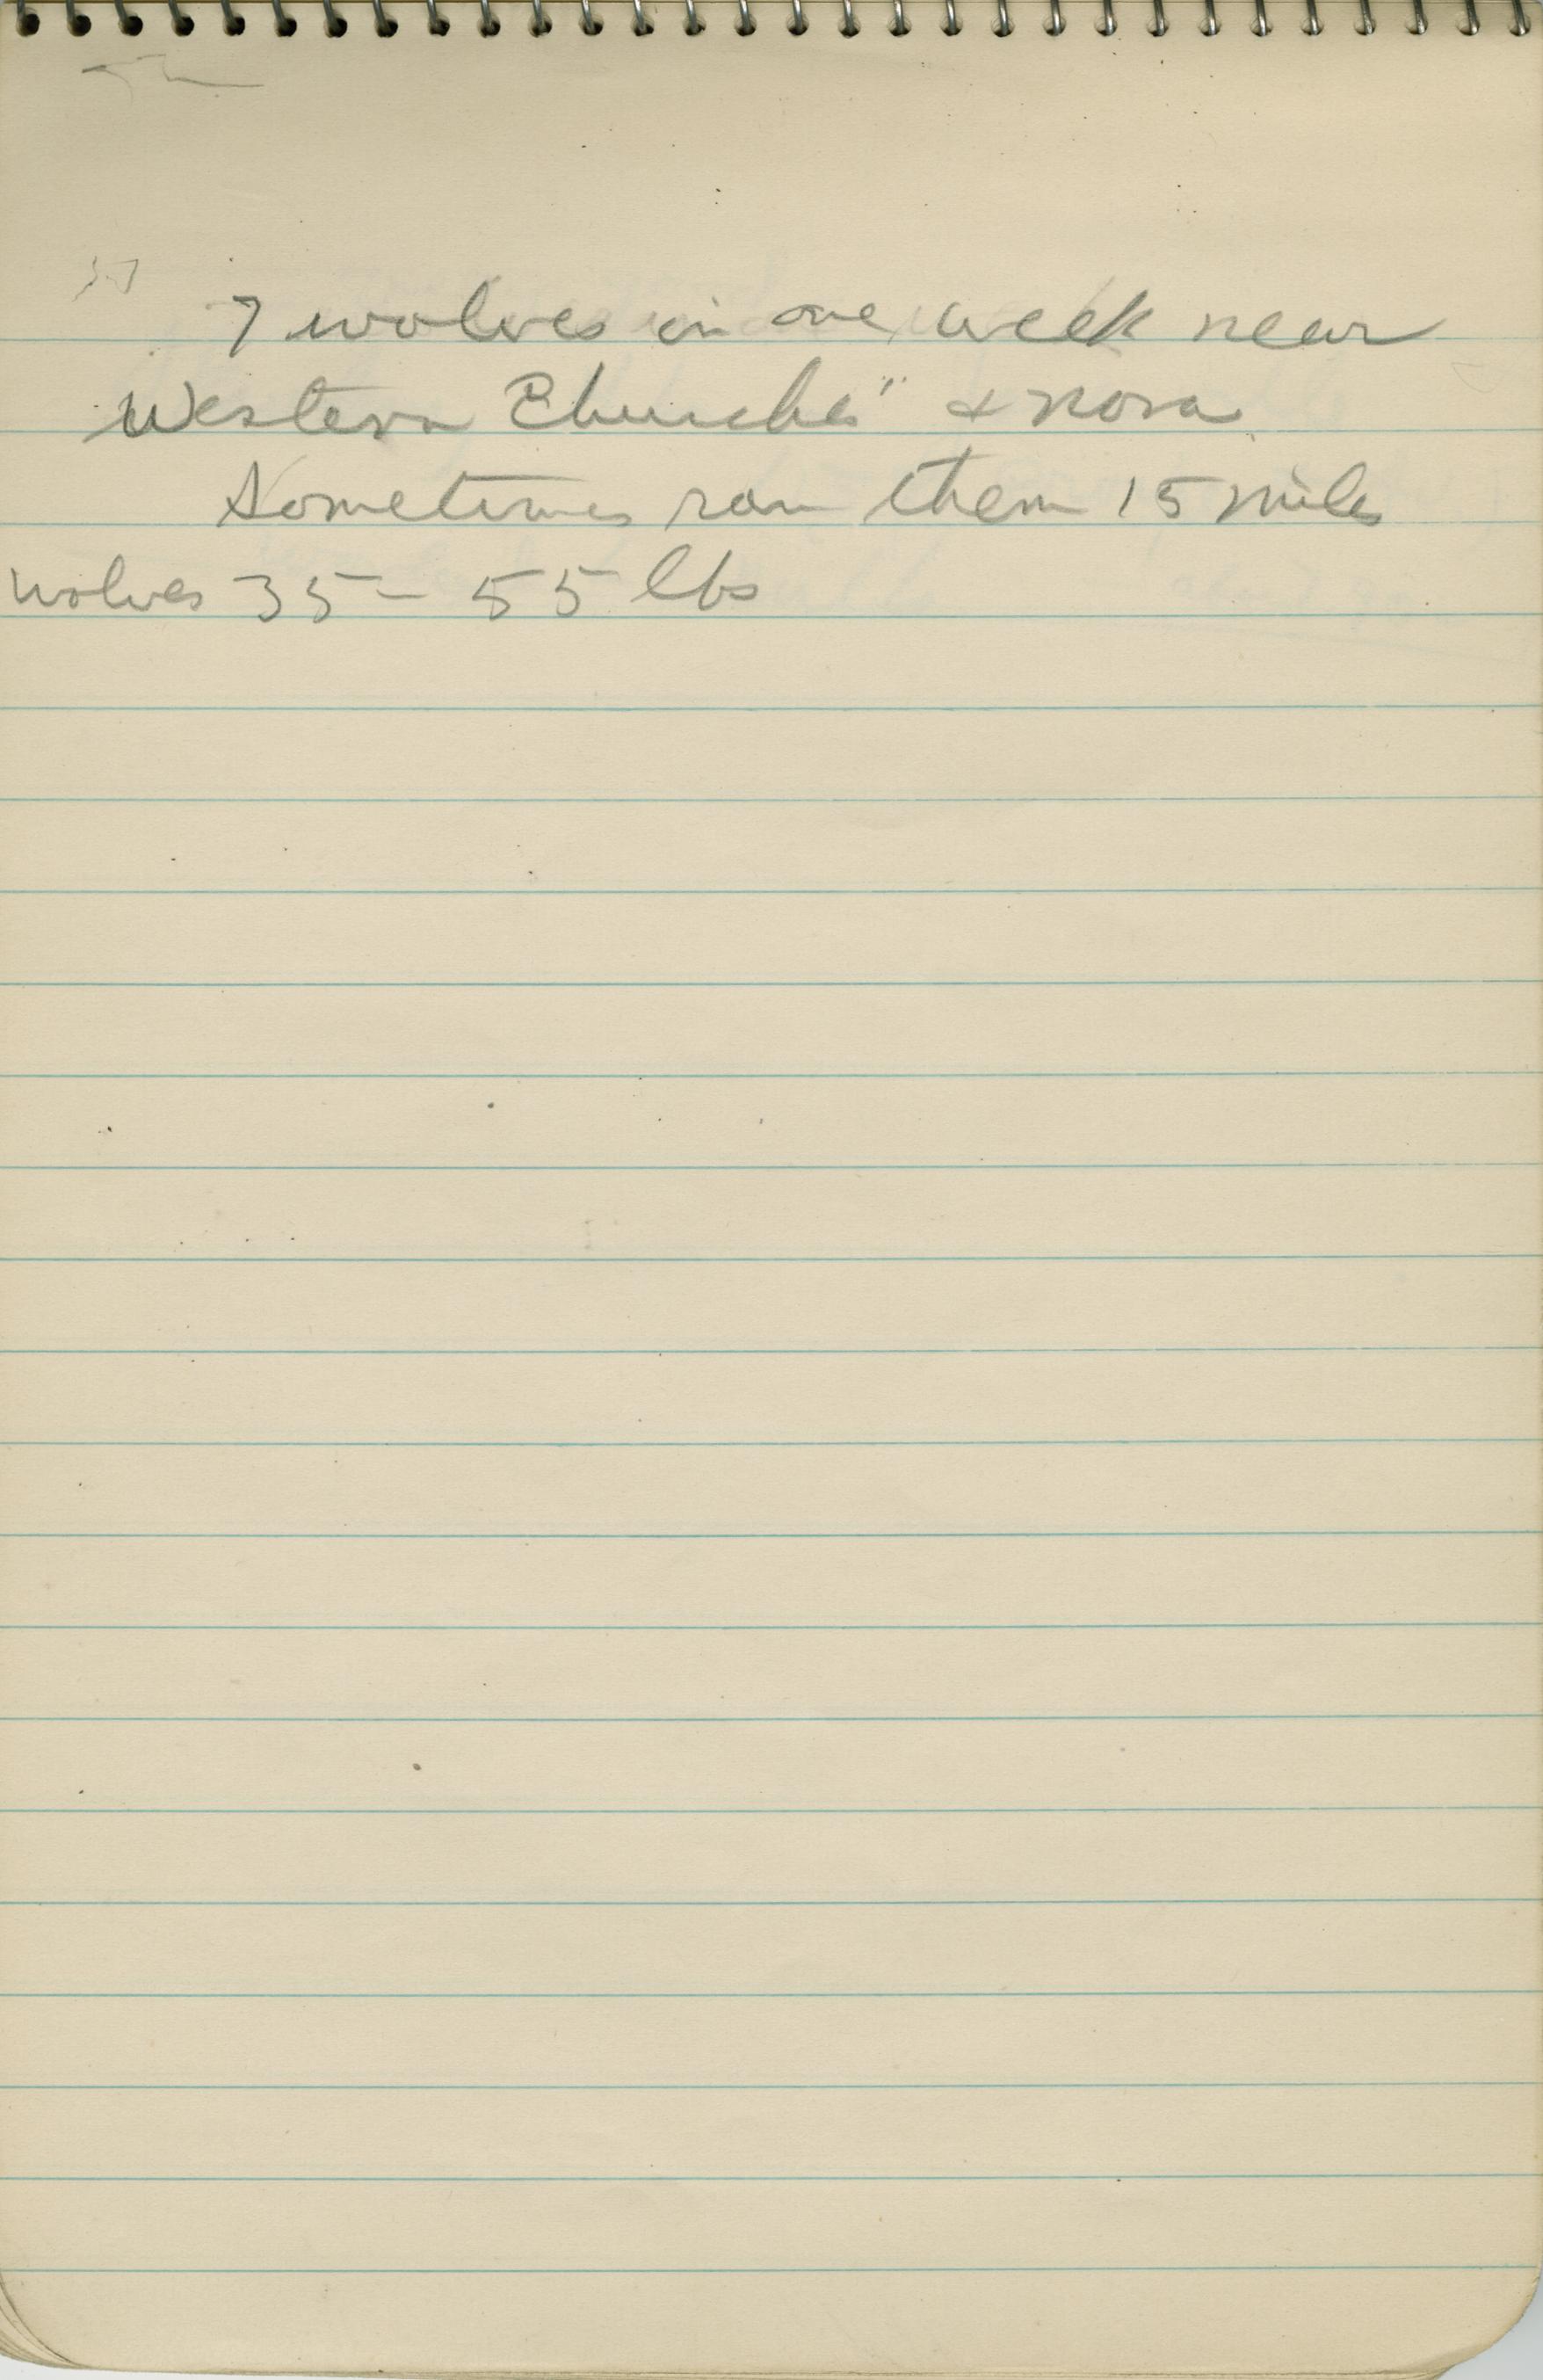 7 wolves in one week near
Western Churches" & Nora
Sometimes ran them 15 miles
wolves 35 - 55 lbs